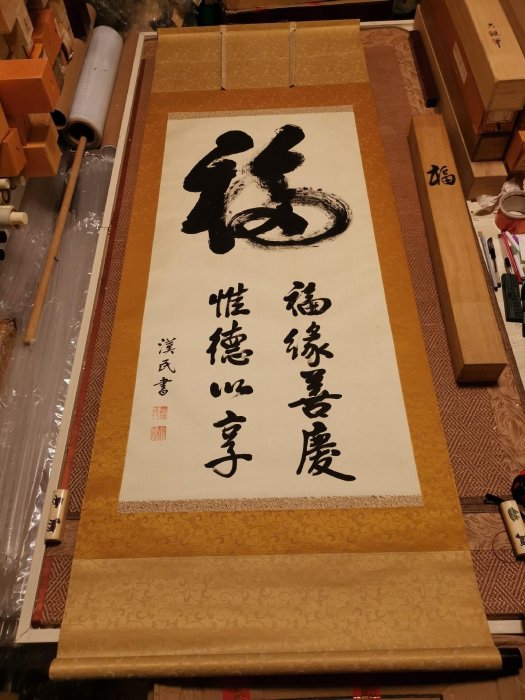 福
福緣善慶
惟德以享
漢民書
福